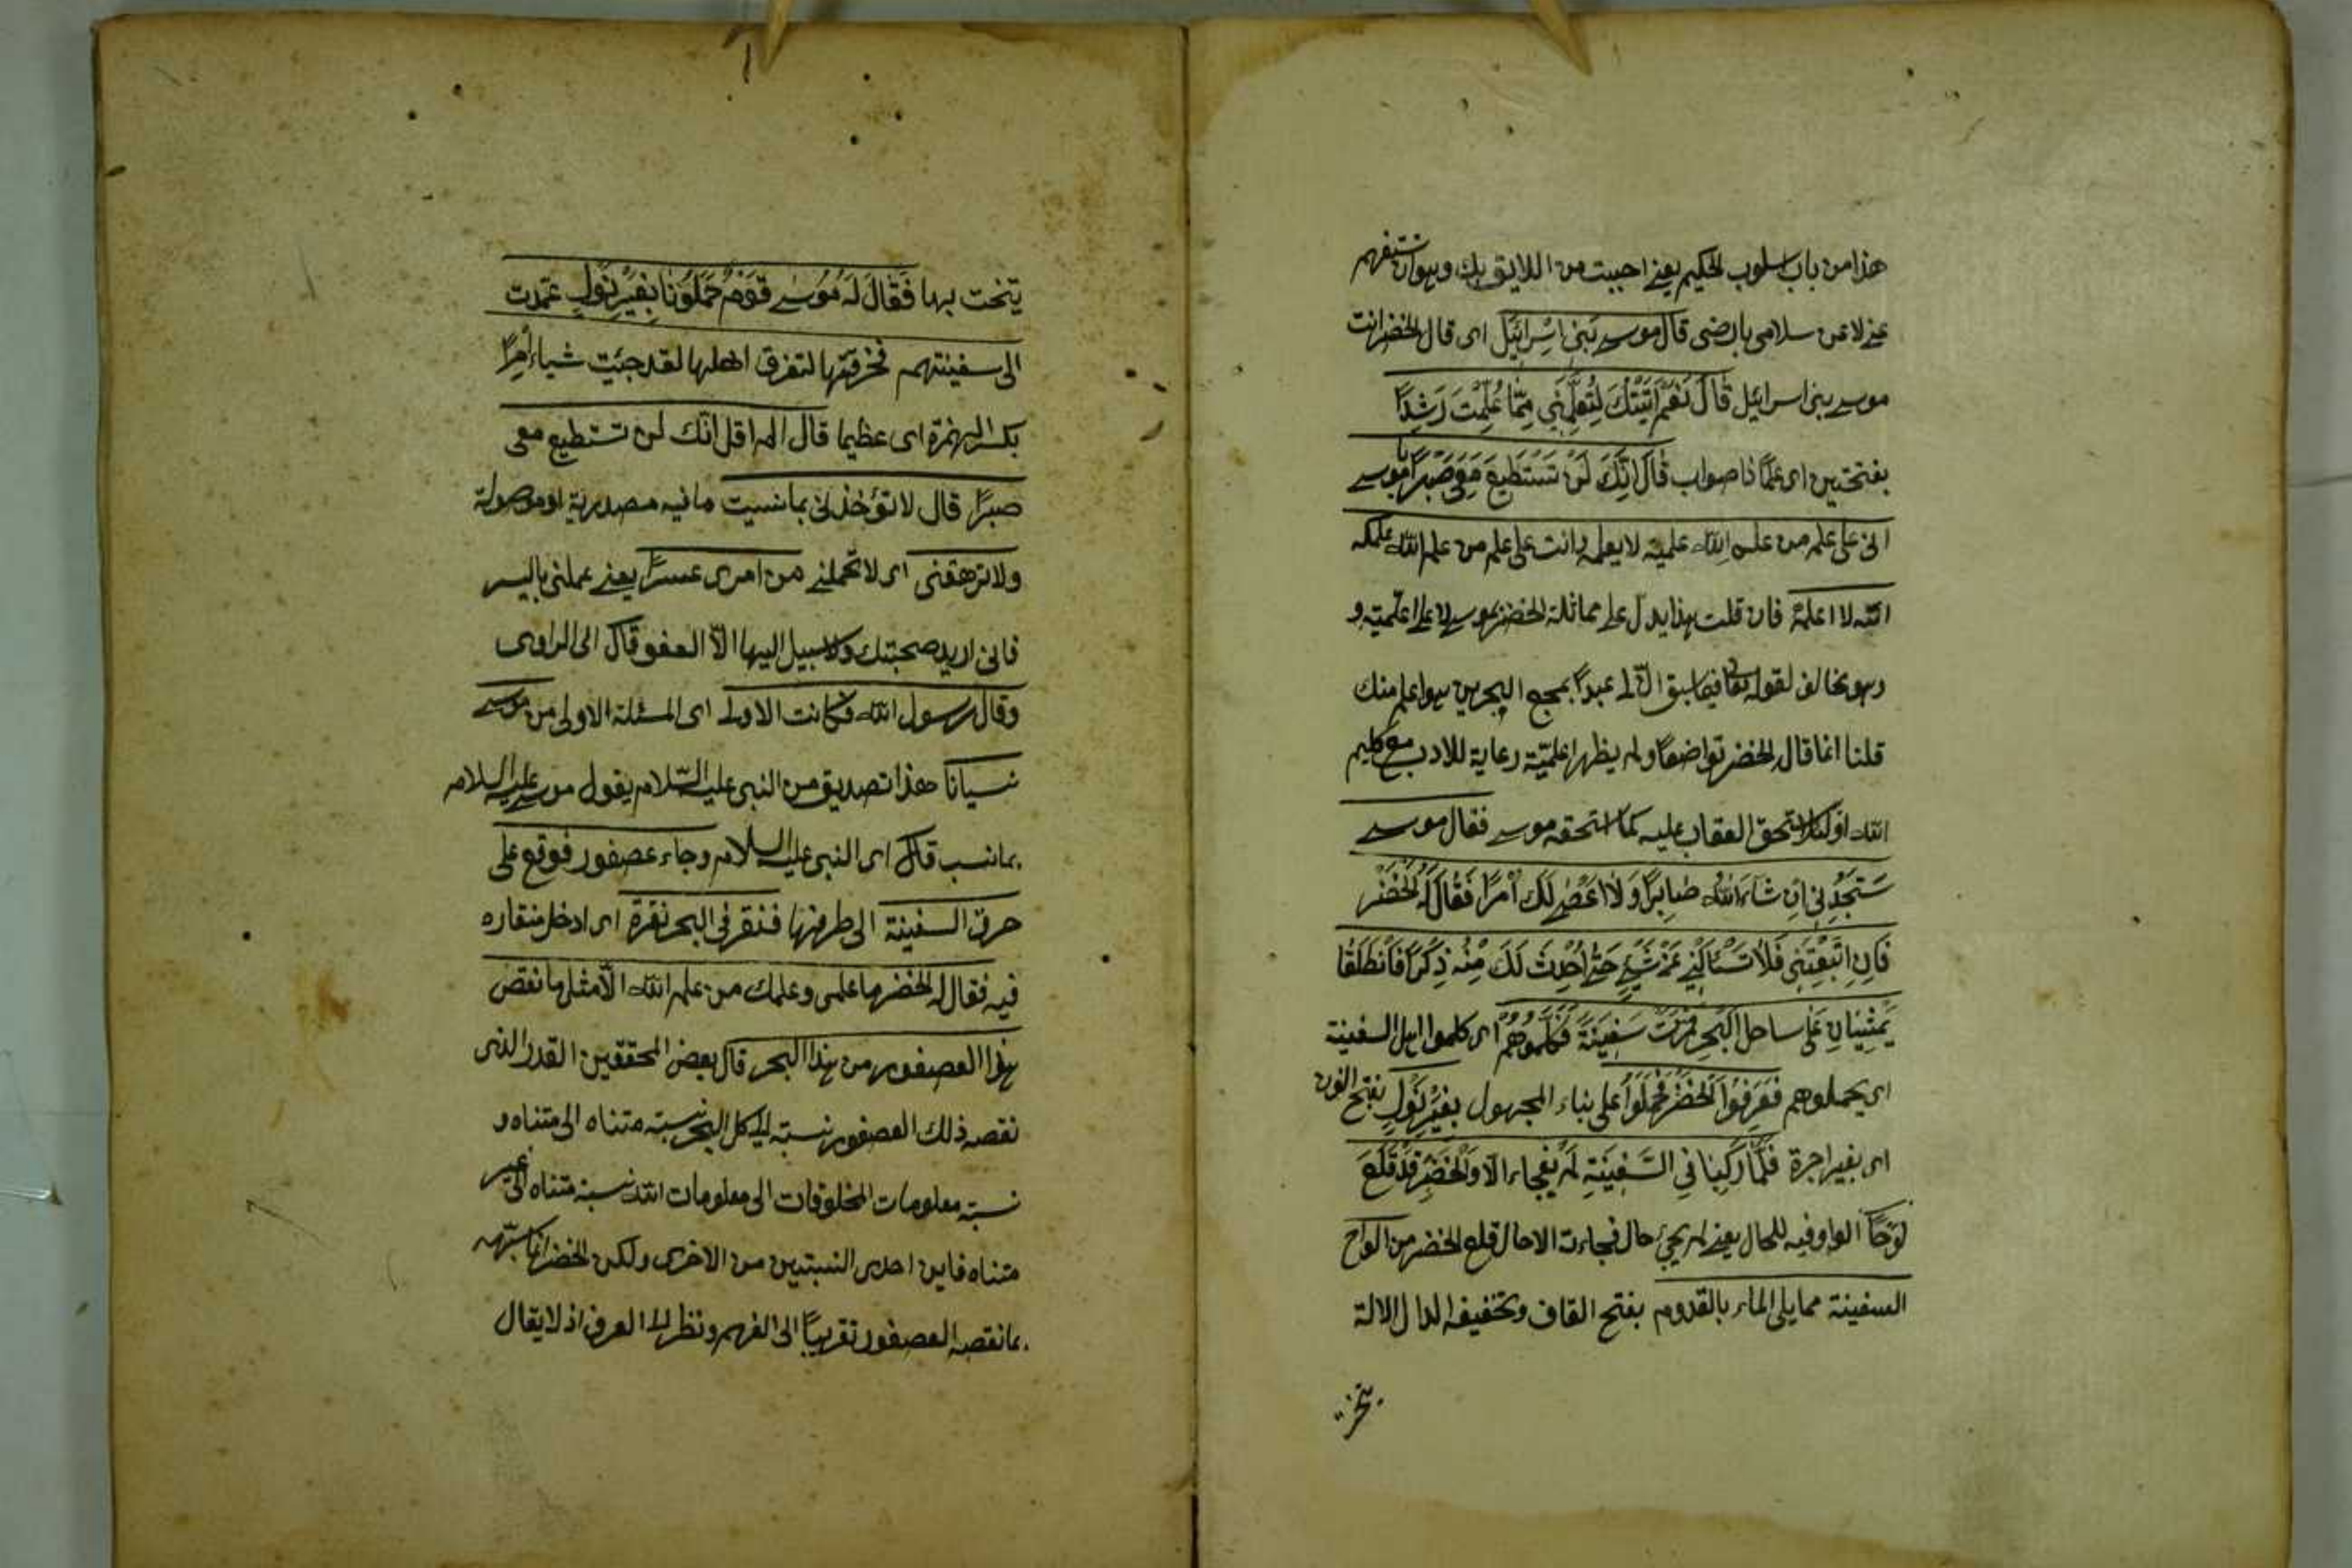 هذا من باب اسلوب الحكيم يعنى اجبت من اللايق بك وهو ان تستفهم
عنى لا عن سلامى بارضى قال موسى بنى اسْرائيل اى قال الخضر انت
موسى بنى اسرائيل قال نَعَمْ اَتَيْتُكَ لِتُعلِّمَنِى مِمّا عُلِّمْتَ رَشَدًا
بفتحتين اى علمًا ذا صواب قالَ اِنَّكَ لَنْ تَسْتَطِيعَ مَعِىَ صَبْرًا يا موسى
انى على علم من علم الله علمنيه لا يعلمه وانت على علم من علم الله علمكه
الله لا اعلمهُ فان قلت هذا يدل على مماثلة الخضر بموسى لا على اعلميته و
وهو مخالف لقوله تعالى فيما سبق انّ لى عبدًا بمجمع البحرين هو اعلم منك
قلنا انما قال الخضر تواضعًا ولم يظهر اعلميّته رعاية للادب مع كليم
الله او لئلا يستحق العقاب عليه كما استحقه موسى فقال موسى
سَتَجِدُنِى اِنْ شاءَ اللهُ صَابِرًا وَلا اَعْصِى لَكَ اَمْرًا فَقَالَ لَهُ الْخَضِرُ
فَاِنِ اتَّبَعْتَنِى فَلا تَسْئَالْنِى عَنْ شَىْءٍ حَتّى اُحْدِثَ لَكَ مِنْهُ ذِكْرًا فَانْطَلَقَا
يَمْشِيَانِ عَلى ساحل البَحرِ فمَرّتْ سَفِينَةٌ فَكَلَّمُوهُمْ اى كلموا اهل السفينة
اى يحملوهم فَعَرَفُوا الْخَضِرَ فَحُمِلُوا على بناء المجهول بِغَيْرِ نَوْلٍ بفتح النون
اى بغير اجرة فَلَمَّا رَكِبَا فِى السَّفِينَةِ لَمْ يَفْجاء الّا والْخَضِرُ قَدْ قَلَعَ
لَوْحًا الواو فيه للحال يعنى لم يجئ حال فجاءت الا حال قلع الخضر من الواح
السفينة مما يلى الماء بالقدوم بفتح القاف وتخفيف الدال الالة
ينحت بها فَقَالَ لَهُ مُوسى قَوْمٌ حَمَلُونا بِغَيْرِ نَوْلٍ عَمَدت
الى سفينتهم فخرقتها لتغرق اهلها لقد جئت شياء اِمرًا
بكسر الهمزة اى عظيما قال الم اقل انّك لن تستطيع معى
صبرًا قال لا تؤخذنى بما نسيت ما فيه مصدرية او موصولة
ولا ترهقنى اى لا تحملنى من امرى عسرًا يعنى عملنى باليسر
فانى اريد صحبتك ولا سبيل اليها الّا العفو قال اى الراوى
وقال رسول الله فكانت الاولى اى المسئلة الاولى من موسى
نسيانا هذا تصديق من النبى عليه السّلام يقول موسى عليه السلام
بما نسيت قال اى النبى عليه السلام وجاء عصفور فوقع على
حرف السفينة الى طرفها فنقر فى البحر نقرة اى ادخل منقاره
فيه فقال له الخضر ما علمى وعلمك من علم الله الّا مثل ما نقص
هذا العصفور من هذا البحر قال بعض المحققين القدر الذى
نقصه ذلك العصفور نسبته الى كل البحر نسبته متناه الى متناه و
نسبته معلومات المخلوقات الى معلومات الله نسبة متناه الى غير
متناه فاين احدى النسبتين من الاخرى ولكن الخضر انما شبّهه
بما نقصه العصفور تقريبًا الى الفهم ونظر الى العرف اذ لا يقال